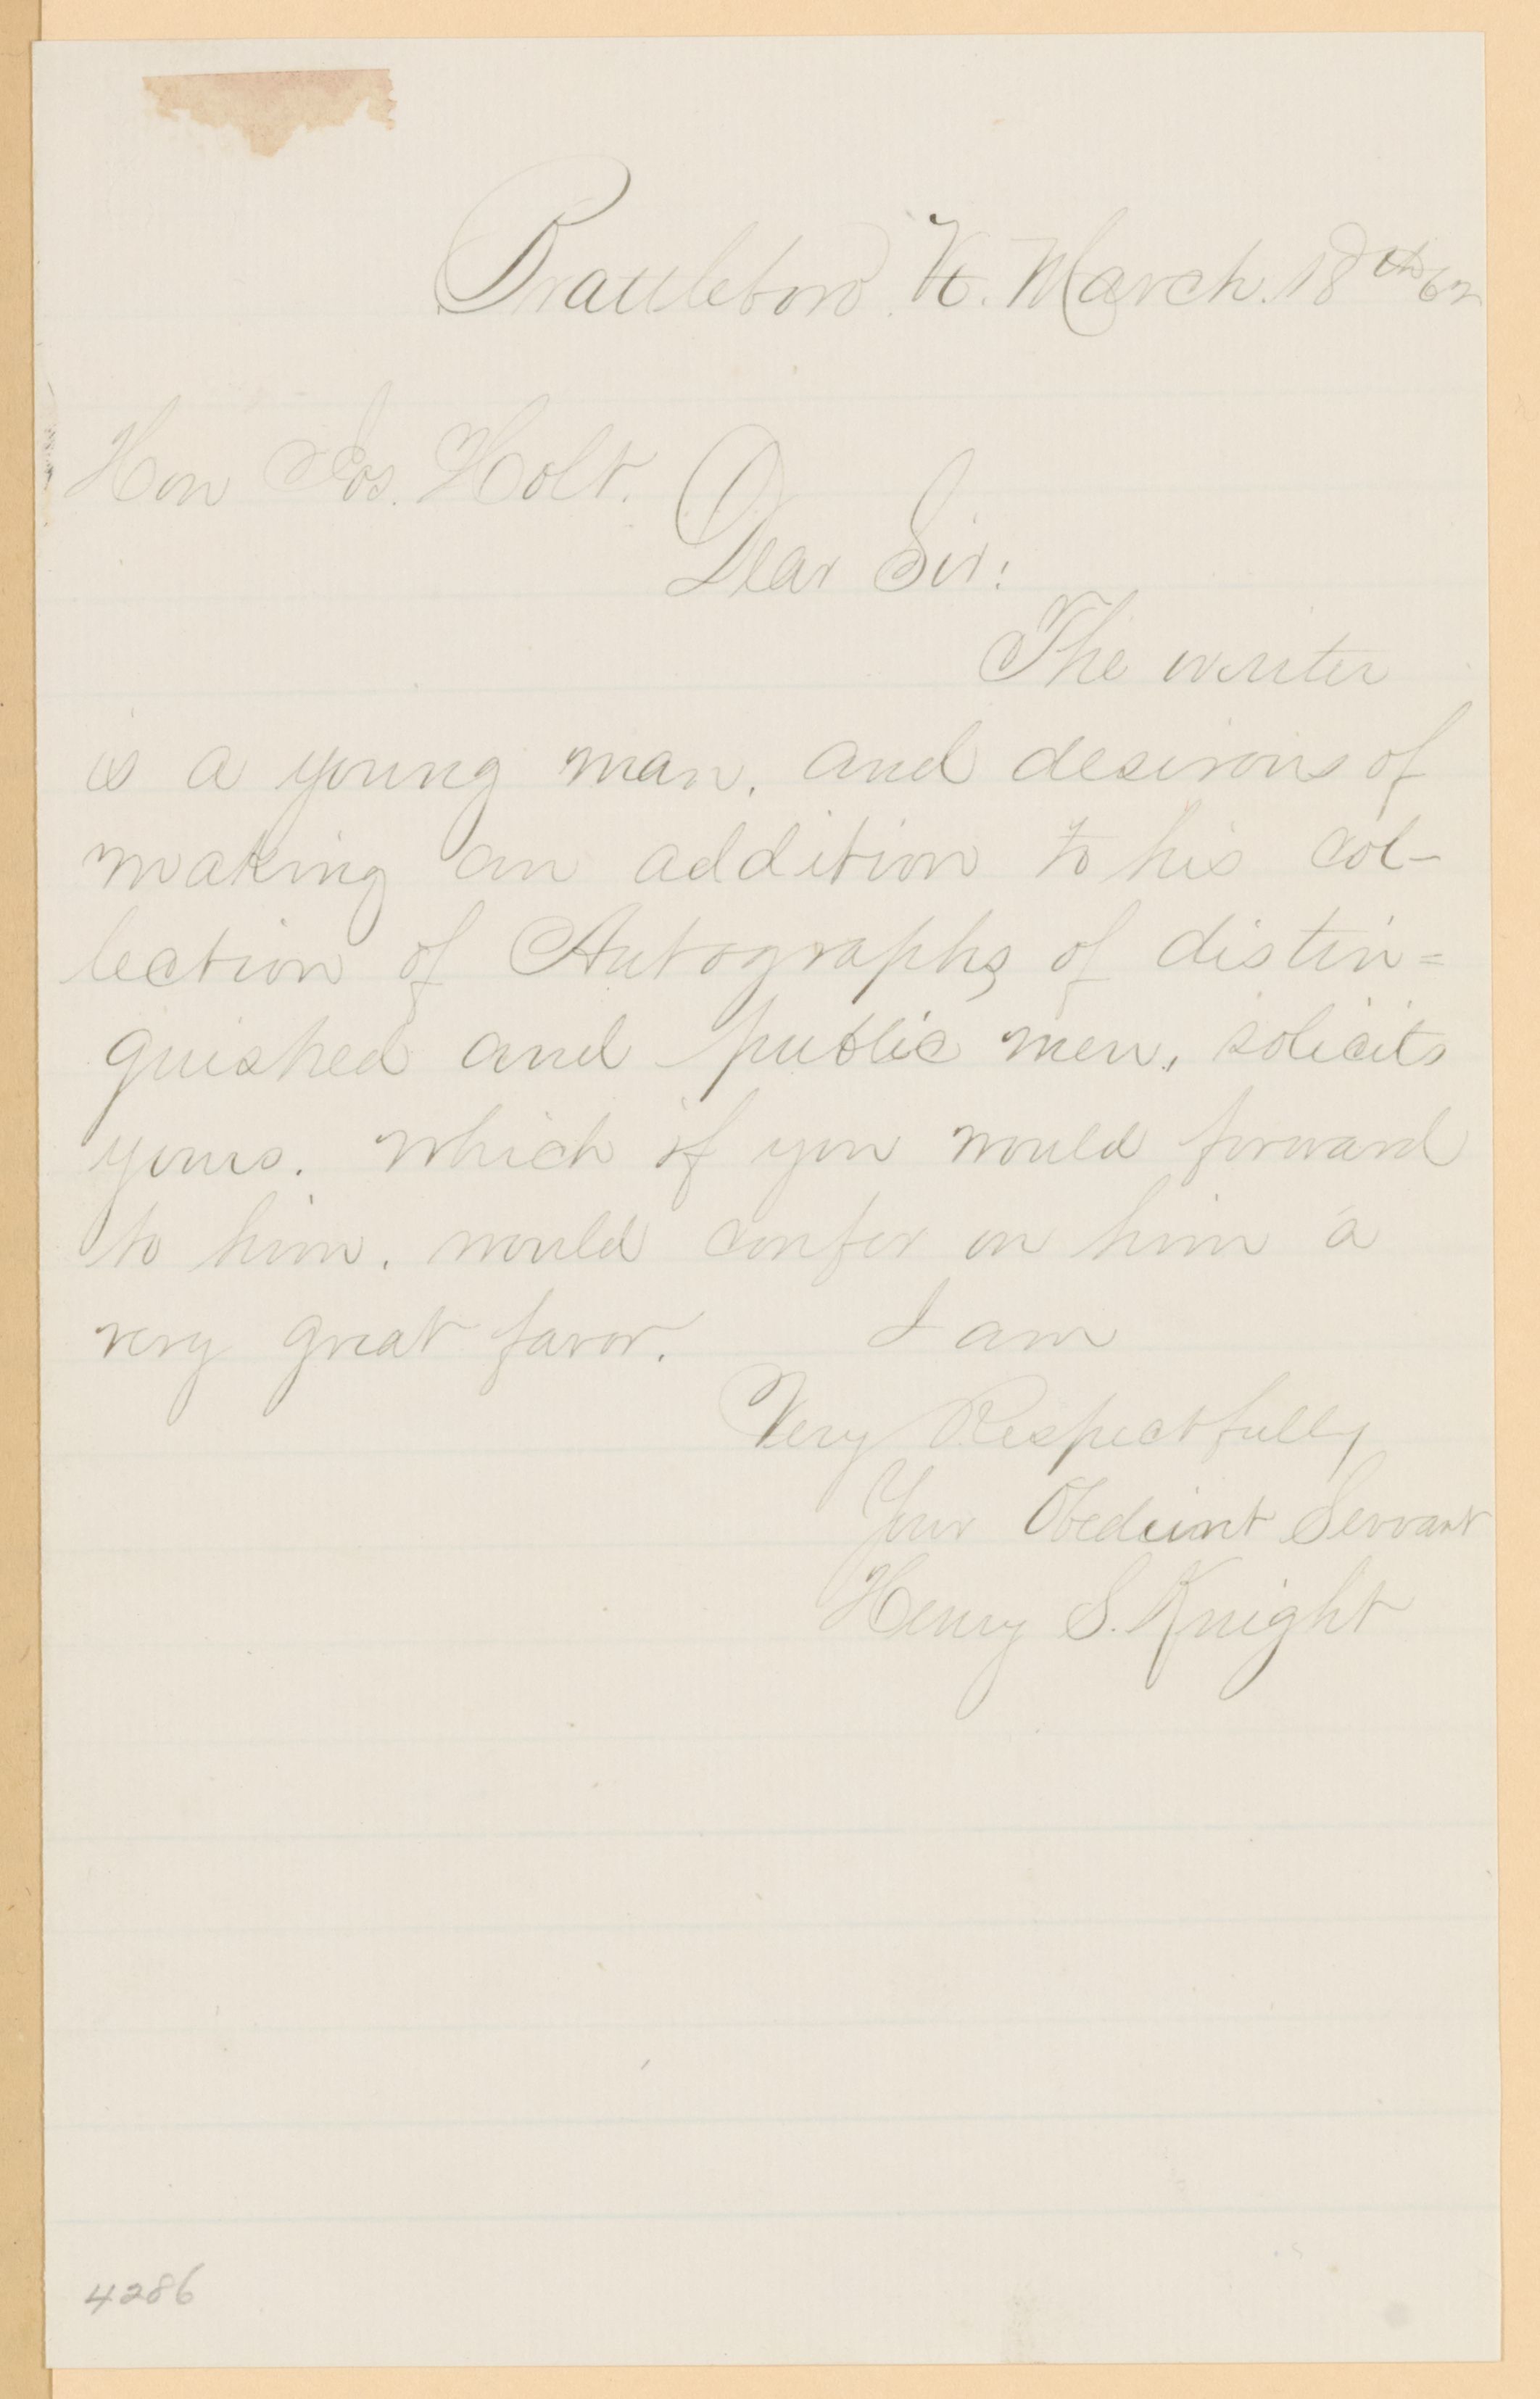 Brattleboro. Vt. March. 18th 62
Hon Jos. Holt.
Dear Sir:
The writer
is a young man, and desirous of
making an addition to his col-
lection of Autographs of distin=
guished and public men, solicits
yours. which if you would forward
to him, would confer on him a
very great favor. I am
Very Respectfully
Your Obedient Servant
Henry S. Knight
4286